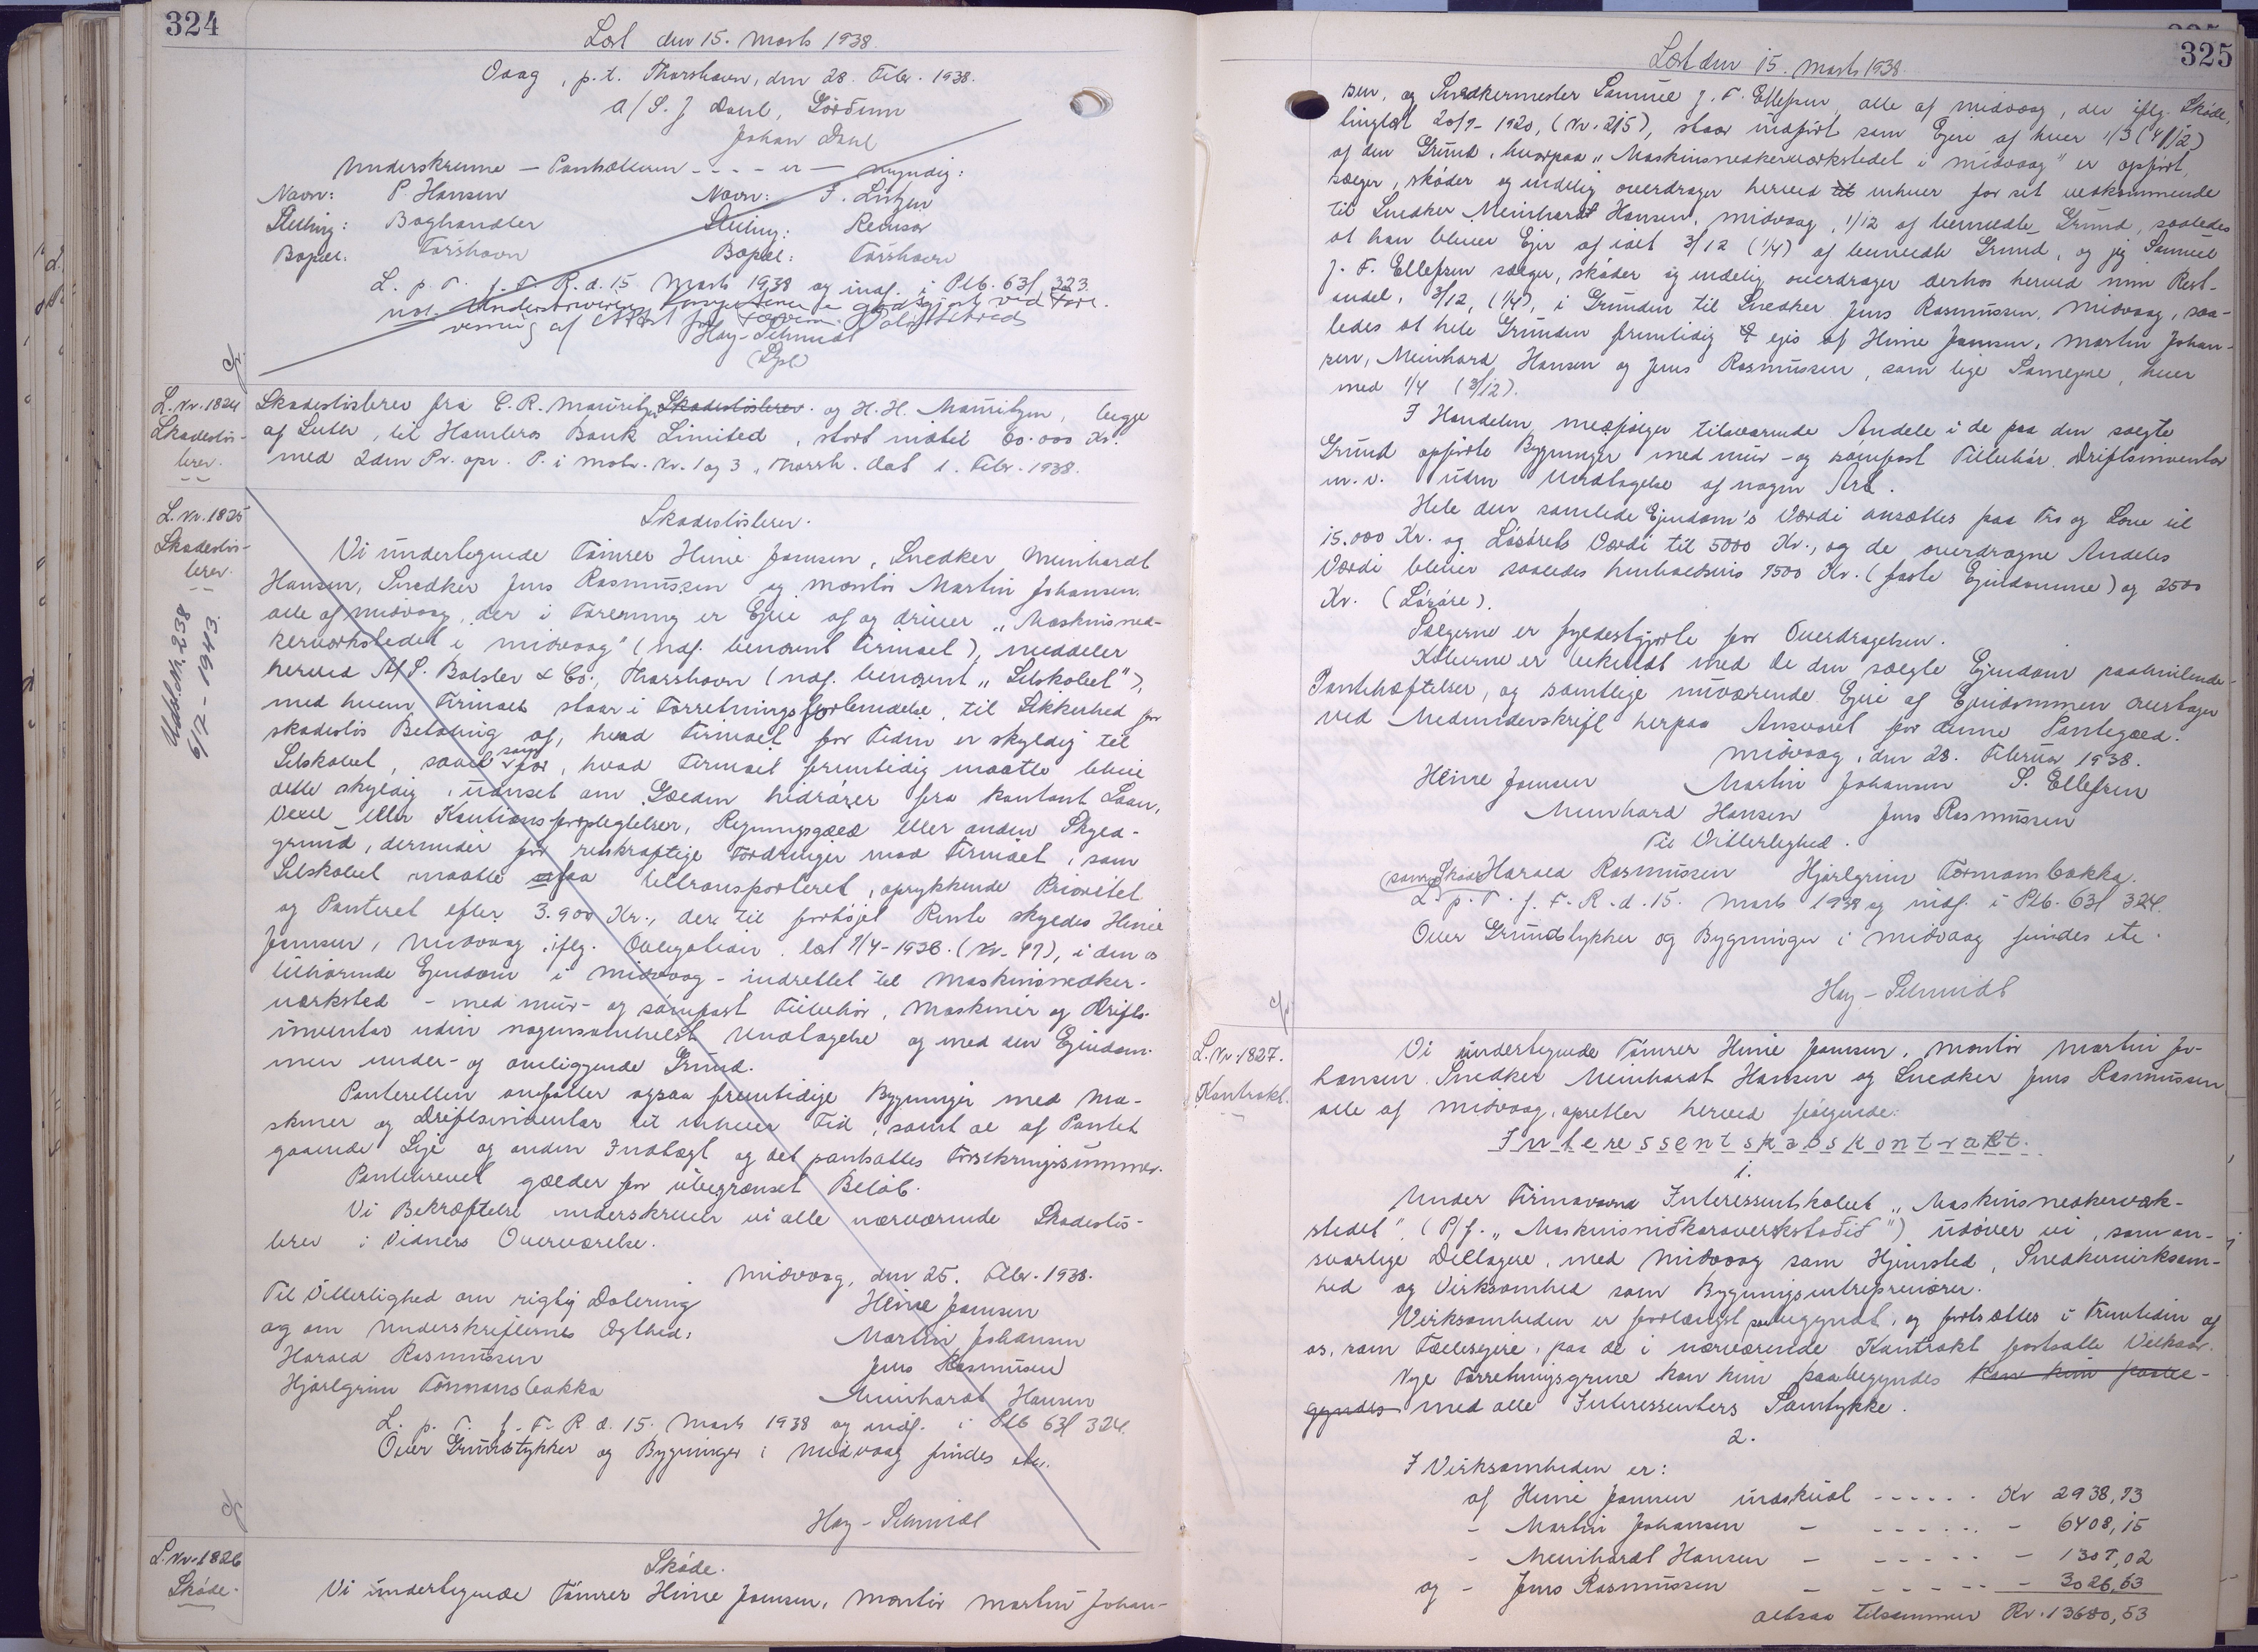 324
Læst den 15. Marts 1938.
Vaag, p.t. Thorshavn, den 28. Febr. 1938.
A/S. J. Dahl,
Johan Dahl
Underskriverne – Panthaveren - - - - er – myndig:
Navn: P. Hansen Navn: F. Lützen
Stilling: Boghandler Stilling: Revisor
Bopæl: Tórshavn Bopæl: Tórshavn
L. p. T. f. F. R. d. 15. Marts 1938 og indf. i Ptb. 63f 323.
ved
af
Hay-Schmidt
L. Nr. 1824
Skadesløs-
brev.
Skadesløsbrev fra C. R. Mouritzen Skadesløsbrev og H. H. Mouritzen, begge
af , til Hambros Bank Limited, stort indtil 60.000 Kr.
med 2den Pr. opr. P. i Matr. Nr. 1 og 3, Thorsh. dat 1. Febr. 1938.
L. Nr. 1825
Skadesløs-
brev.
Udsl. Nr. 238
6/12-1943.
Skadesløsbrev.
Vi undertegnede Tømrer Heine Joensen, Snedker Meinhardt
Hansen, Snedker Jens Rasmussen og Montør Martin Johansen,
alle af Midvaag, der i Forening er Ejere af og driver „Maskinsned-
kerværkstedet i Midvaag" (ndf. benævnt Firmaet), meddeler
herved A/S. Balslev & Co., Thorshavn (ndf. benævnt „Selskabet"),
med hvem Firmaet staar i Forretningsforbindelse, til Sikkerhed for
skadesløs Betaling af, hvad Firmaet for Tiden er skyldig til
Selskabet, saavel som for, hvad Firmaet fremtidig maatte blive
dette skyldig, uanset om Gælden hidrører fra kontant Laan,
Veksel eller Kautionsforpligtelser, Regningsgæld eller anden Skyld-
grund, derunder for retskraftige Fordringer mod Firmaet, som
Selskabet maatte faa tiltransporteret, oprykkende Prioritet
og Panteret efter 3.900 Kr., der til forhøjet Rente skyldes Heine
Joensen, Midvaag, iflg. Obligation, læst 7/4-1936. (Nr. 47), i den os
tilhørende Ejendom i Midvaag – indrettet til Maskinsnedker-
værksted – med mur- og sømfast Tilbehør, Maskiner og Drifts-
inventar uden nogensomhelst Undtagelse og med den Ejendom-
men under- og omliggende Grund.
Panteretten omfatter ogsaa fremtidige Bygninger med Ma-
skiner og Driftsinventar til enhver Tid, samt de af Pantet
gaaende Leje og anden Indtægt og det pantsattes Forsikringssummer.
Pantebrevet gælder for ubegrænset Beløb.
Til Bekræftelse underskriver vi alle nærværende Skadesløs-
brev i Vidners Overværelse.
Midvaag, den 25. Febr. 1938.
Til Vitterlighed om rigtig Datering
og om Underskrifternes Ægthed:
Harald Rasmussen
Hjørlgrim Tormansbakka
Heine Joensen
Martin Johansen
Jens Rasmussen
Meinhardt Hansen
L. p. T. f. F. R. d. 15. Marts 1938 og indf. i Ptb 63f 324.
Over Grundstykker og Bygninger i Midvaag findes ikke.
Hay-Schmidt
L. Nr. 1826
Skøde.
Skøde.
Vi undertegnede Tømrer Heine Joensen, Montør Martin Johan-
325
Læst den 15. Marts 1938.
sen, og Snedkermester Samuel J. F. Ellefsen, alle af Midvaag, der iflg. Skøde,
tinglæst 20/7-1920, (Nr. 215), staar indført som Ejere af hver 1/3 (4/12)
af den Grund, hvorpaa „Maskinsnedkerværkstedet i Midvaag" er opført,
sælger, skøder og endelig overdrager herved til enhver for sit vedkommende
til Snedker Meinhardt Hansen, Midvaag, 1/12 af bemeldte Grund, saaledes
at han bliver Ejer af ialt 3/12 (1/4) af bemeldte Grund, og jeg Samuel
J. F. Ellefsen sælger, skøder og endelig overdrager derhos herved min Rest-
andel, 3/12, (1/4), i Grunden til Snedker Jens Rasmussen, Midvaag, saa-
ledes at hele Grunden fremtidig ejes af Heine Joensen, Martin Johan-
sen, Meinhard Hansen og Jens Rasmussen, som lige Samejere, hver
med 1/4 (3/12).
I Handelen medfølger tilsvarende Andele i de paa den solgte
Grund opførte Bygninger med mur- og sømfast Tilbehør, Driftsinventar
m.v. uden Undtagelse af nogen Art.
Hele den samlede Ejendom's Værdi ansættes paa Tro og Love til
15.000 Kr. og Løsørets Værdi til 5000 Kr., og de overdragne Andeles
Værdi bliver saaledes henholdsvis 7500 Kr. (faste Ejendomme) og 2500
Kr. (Løsøre).
Sælgerne er fyldestgjorte for Overdragelsen.
Køberne er bekendt med de den solgte Ejendom paahvilende
Pantehæftelser, og samtlige nuværende Ejere af Ejendommen overtager
ved Medunderskrift herpaa Ansvaret for denne Pantegæld.
Midvaag, den 28. Februar 1938.
Heine Joensen Martin Johansen S. Ellefsen
Meinhard Hansen Jens Rasmussen
Til Vitterlighed.
Harald Rasmussen Hjørlgrim Tormansbakka.
L. p. T. f. F. R. d. 15. Marts 1938 og indf. i Ptb. 63f 324.
Over Grundstykker og Bygninger i Midvaag findes ikke.
Hay-Schmidt
L. Nr. 1827.
Kontrakt.
Vi undertegnede Tømrer Heine Joensen, Montør Martin Jo-
hansen, Snedker Meinhardt Hansen og Snedker Jens Rasmussen
alle af Midvaag, opretter herved følgende:
Interessentskabskontrakt.
1.
Under Firmanavnet Interessentskabet „Maskinsnedkerværk-
stedet". (P/f. „Maskinsniðkaraverkstaðið") udøver vi, som an-
svarlige Deltagere, med Midvaag som Hjemsted, Snedkervirksom-
hed og Virksomhed som Bygningsentreprenører.
Virksomheden er forlængst paabegyndt, og fortsættes i Fremtiden af
os, som Fællesejere, paa de i nærværende Kontrakt fastsatte Vilkaar.
Nye Forretningsgrene kan kun paabegyndes kan kun paabe-
gyndes med alle Interessenters Samtykke.
2.
I Virksomheden er:
af Heine Joensen indskudt - - - - - - Kr 2938,73
- Martin Johansen – - - - - - - - 6408,15
- Meinhardt Hansen – - - - - - - 1307,02
og - Jens Rasmussen – - - - - - - 3026,63
altsaa tilsammen Kr. 13680,53